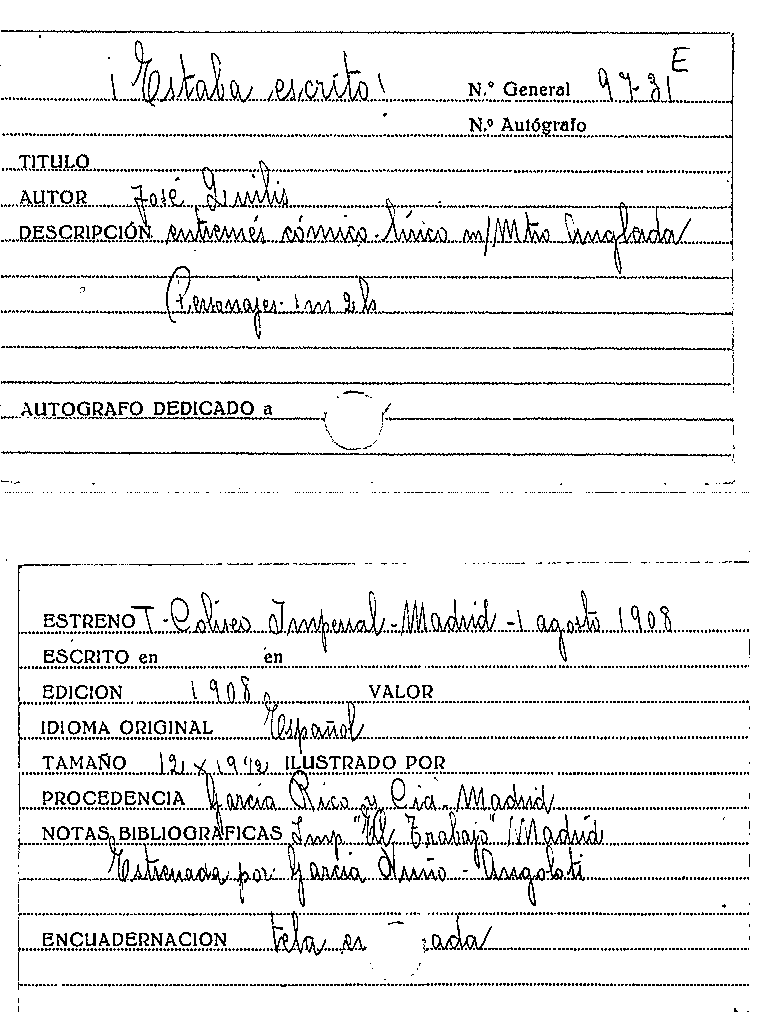 ¡Estaba escrito! N.º General 97-31 E
N.º Autógrafo
TITULO
AUTOR José Quilis
DESCRIPCIÓN entremés cómico-lírico m/Mtro Anglada
Personajes- 1 m 2 h
AUTOGRAFO DEDICADO a
ESTRENO T-Coliseo Imperial-Madrid-1 agosto 1908
ESCRITO en en
EDICION 1908 VALOR
IDIOMA ORIGINAL Español
TAMAÑO ILUSTRADO POR
PROCEDENCIA García Rico y Cia-Madrid
NOTAS BIBLIOGRÁFICAS Imp "El Trabajo"/Madrid
Estrenada por: García Nuño - Angoloti
ENCUADERNACION tela